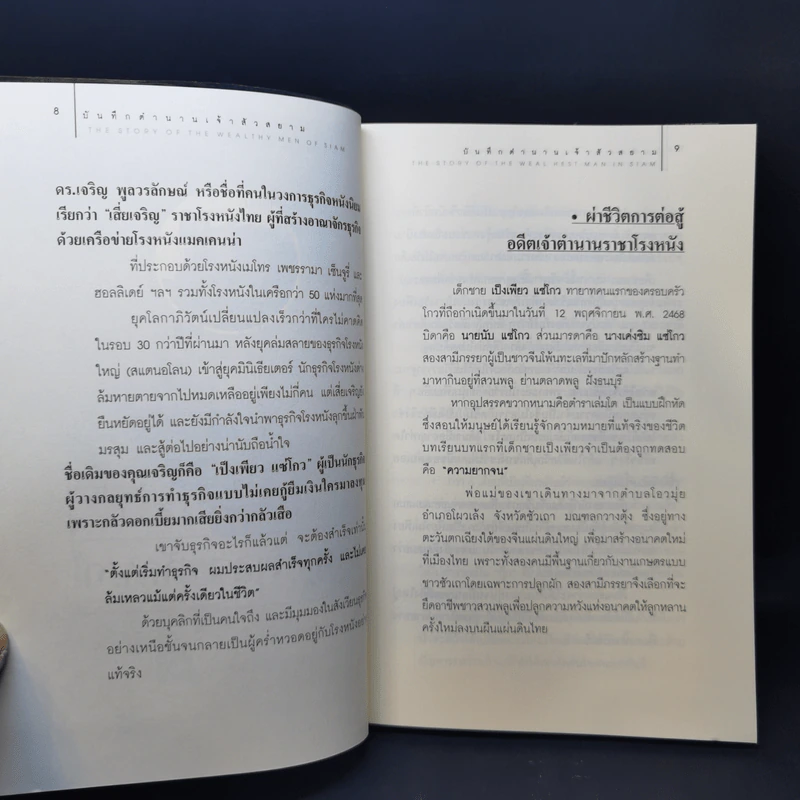 8
บันทึกตำนานเจ้าสัวสยาม
THE STORY OF THE WEALTHY MEN OF SIAM
ดร.เจริญ พูลวรลักษณ์ หรือชื่อที่คนในวงการธุรกิจหนังนิยม
เรียกว่า "เสี่ยเจริญ" ราชาโรงหนังไทย ผู้ที่สร้างอาณาจักรธุรกิจ
ด้วยเครือข่ายโรงหนังแมคเคนน่า
ที่ประกอบด้วยโรงหนังเมโทร เพชรรามา เซ็นจูรี่ และ
ฮอลลิเดย์ ฯลฯ รวมทั้งโรงหนังในเครือกว่า 50 แห่งมากที่สุด
ยุคโลกาภิวัตน์เปลี่ยนแปลงเร็วกว่าที่ใครไม่คาดคิด
ในรอบ 30 กว่าปีที่ผ่านมา หลังยุคล่มสลายของธุรกิจโรงหนัง
ใหญ่ (สแตนอโลน) เข้าสู่ยุคมินิเธียเตอร์ นักธุรกิจโรงหนังต่าง
ล้มหายตายจากไปหมดเหลืออยู่เพียงไม่กี่คน แต่เสี่ยเจริญก็
ยืนหยัดอยู่ได้ และยังมีกำลังใจนำพาธุรกิจโรงหนังลุกขึ้นฝ่า
มรสุม และสู้ต่อไปอย่างน่านับถือน้ำใจ
ชื่อเดิมของคุณเจริญก็คือ "เป็งเพียว แซ่โกว" ผู้เป็นนักธุรกิจ
ผู้วางกลยุทธ์การทำธุรกิจแบบไม่เคยกู้ยืมเงินใครมาลงทุน
เพราะกลัวดอกเบี้ยมากเสียยิ่งกว่ากลัวเสือ
เขาจับธุรกิจอะไรก็แล้วแต่ จะต้องสำเร็จเท่านั้น
"ตั้งแต่เริ่มทำธุรกิจ ผมประสบผลสำเร็จทุกครั้ง และไม่เคย
ล้มเหลวแม้แต่ครั้งเดียวในชีวิต"
ด้วยบุคลิกที่เป็นคนใจถึง และมีมุมมองในสังเวียนธุรกิจ
อย่างเหนือชั้นจนกลายเป็นผู้คร่ำหวอดอยู่กับโรงหนัง
แท้จริง
บันทึกตำนานเจ้าสัวสยาม 9
THE STORY OF THE WEAL HEST MAN IN SIAM
• ผ่าชีวิตการต่อสู้
อดีตเจ้าตำนานราชาโรงหนัง
เด็กชาย เป็งเพียว แซ่โกว ทายาทคนแรกของครอบครัว
โกวที่ถือกำเนิดขึ้นมาในวันที่ 12 พฤศจิกายน พ.ศ. 2468
บิดาคือ นายนับ แซ่โกว ส่วนมารดาคือ นางเค่งซิม แซ่โกว
สองสามีภรรยาผู้เป็นชาวจีนโพ้นทะเลที่มาปักหลักสร้างฐานทำ
มาหากินอยู่ที่สวนพลู ย่านตลาดพลู ฝั่งธนบุรี
หากอุปสรรคขวากหนามคือตำราเล่มโต เป็นแบบฝึกหัด
ซึ่งสอนให้มนุษย์ได้เรียนรู้จักความหมายที่แท้จริงของชีวิต
บทเรียนบทแรกที่เด็กชายเป็งเพียวจำเป็นต้องถูกทดสอบ
คือ "ความยากจน"
พ่อแม่ของเขาเดินทางมาจากตำบลโอวมุ่ย
อำเภอโผวเล้ง จังหวัดซัวเถา มณฑลกวางตุ้ง ซึ่งอยู่ทาง
ตะวันตกเฉียงใต้ของจีนแผ่นดินใหญ่ เพื่อมาสร้างอนาคตใหม่
ที่เมืองไทย เพราะทั้งสองคนมีพื้นฐานเกี่ยวกับงานเกษตรแบบ
ชาวซัวเถาโดยเฉพาะการปลูกผัก สองสามีภรรยาจึงเลือกที่จะ
ยึดอาชีพชาวสวนพลูเพื่อปลูกความหวังแห่งอนาคตให้ลูกหลาน
ครั้งใหม่ลงบนผืนแผ่นดินไทย